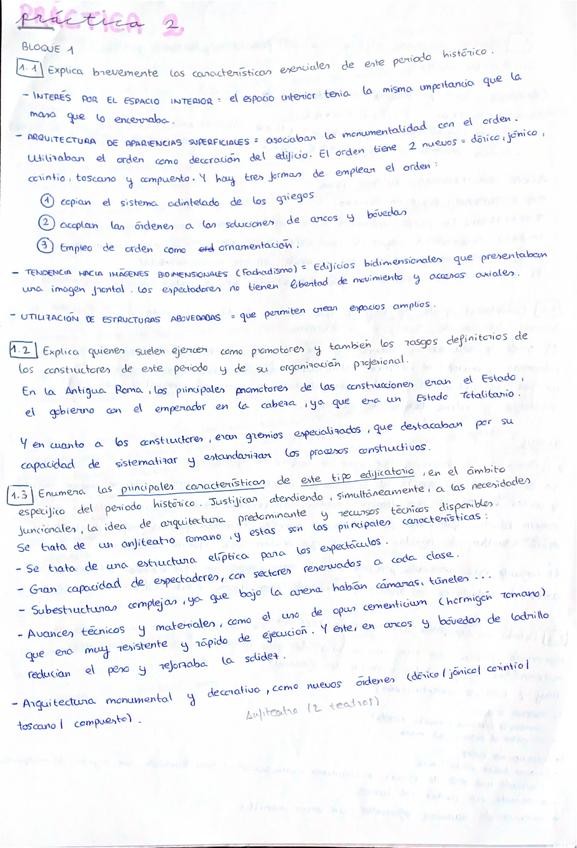 práctica 2
BLOQUE 1
1.1 Explica brevemente las características esenciales de este periodo histórico.
- INTERÉS POR EL ESPACIO INTERIOR: el espacio interior tenía la misma importancia que la
masa que lo encerraba.
- ARQUITECTURA DE APARIENCIAS SUPERFICIALES = asociaban la monumentalidad con el orden.
Utilizaban el orden como decoración del edificio. El orden tiene 2 nuevos = dórico, jónico,
corintio, toscano y compuesto. Y hay tres formas de emplear el orden:
① copian el sistema adintelado de los griegos
② acoplan las órdenes a las soluciones de arcos y bóvedas
③ Empleo de orden como ornamentación.
- TENDENCIA HACIA IMÁGENES BIDIMENSIONALES (Fachadismo) = Edificios bidimensionales que presentaban
una imagen frontal. Los espectadores no tienen libertad de movimiento y accesos axiales.
- UTILIZACIÓN DE ESTRUCTURAS ABOVEDADAS = que permiten crear espacios amplios.
1.2 Explica quienes suelen ejercer como promotores y también los rasgos definitorios de
los constructores de este periodo y de su organización profesional.
En la Antigua Roma, los principales promotores de las construcciones eran el Estado,
el gobierno con el emperador en la cabeza, ya que era un Estado Totalitario.
Y en cuanto a los constructores, eran gremios especializados, que destacaban por su
capacidad de sistematizar y estandarizar los procesos constructivos.
1.3 Enumera las principales características de este tipo edificatorio, en el ámbito
específico del periodo histórico. Justificar atendiendo, simultáneamente, a las necesidades
funcionales, la idea de arquitectura predominante y recursos técnicos disponibles.
Se trata de un anfiteatro romano, y estas son las principales características:
- Se trata de una estructura elíptica para los espectáculos.
- Gran capacidad de espectadores, con sectores reservados a cada clase.
- Subestructuras complejas, ya que bajo la arena habían cámaras, túneles ...
- Avances técnicos y materiales, como el uso de opus cementicium (hormigón romano)
que era muy resistente y rápido de ejecución. Y este, en arcos y bóvedas de ladrillo
reducían el peso y reforzaba la solidez.
- Arquitectura monumental y decorativa, como nuevos órdenes (dórico / jónico / corintio /
toscano / compuesto).
Anfiteatro (2 teatros)